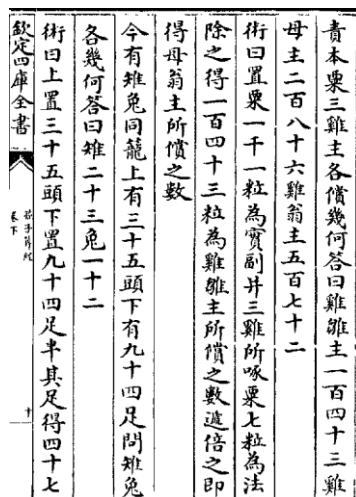 責本粟三雞主各償幾何答曰雞雛主一百四十三雞
母主二百八十六雞翁主五百七十二
術曰置粟一千一粒為實副并三雞所啄粟七粒為法
除之得一百四十三粒為雞雛主所償之數遞倍之即
得母翁主所償之數
今有雉兔同籠上有三十五頭下有九十四足問雉兔
各幾何答曰雉二十三兔一十二
術曰上置三十五頭下置九十四足半其足得四十七
欽定四庫全書
孫子算經
卷下
十